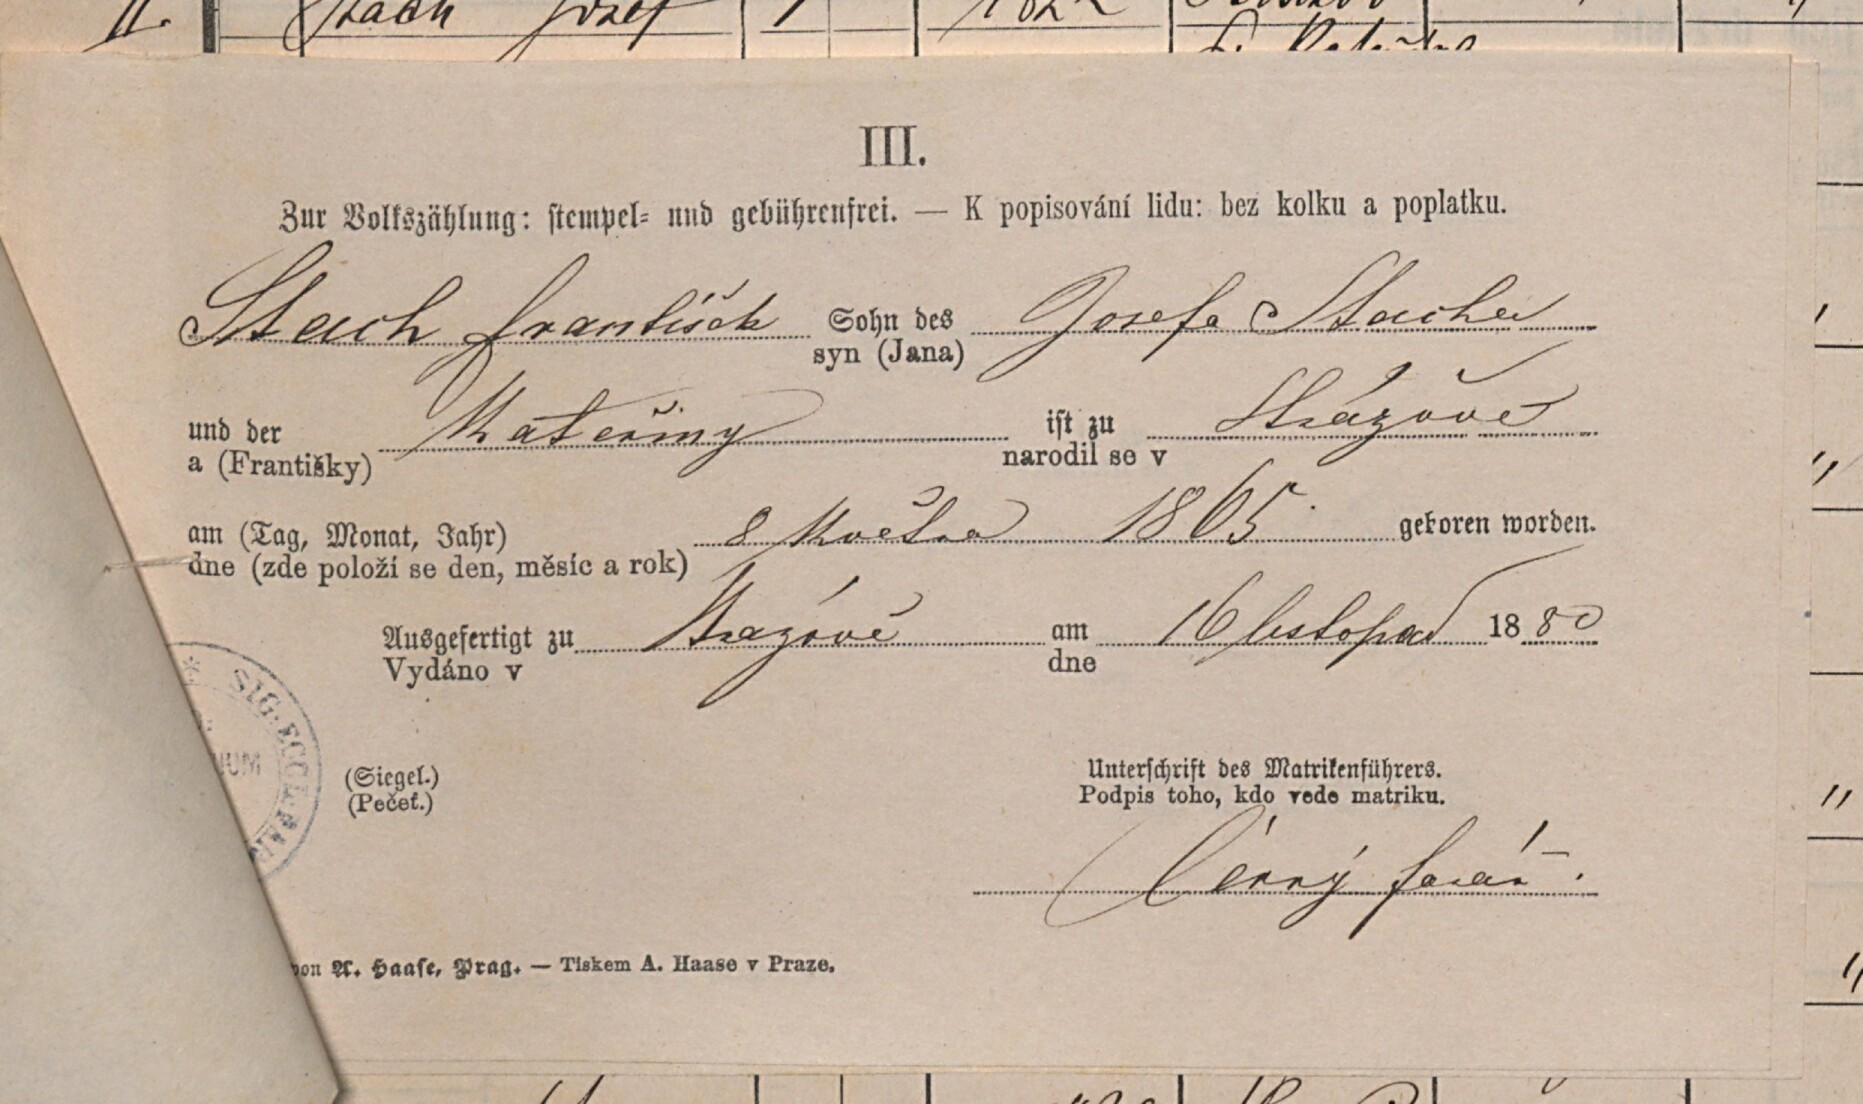 II. Stach Josef 1 1822
III.
Zur Volkszählung: stempel- und gebührenfrei. — K popisování lidu: bez kolku a poplatku.
Stach František Sohn des Josefa Stacha
syn (Jana)
und der Kateřiny ist zu Strážově
a (Františky) narodil se v
am (Tag, Monat, Jahr) 8 Května 1865 geboren worden.
dne (zde položí se den, měsíc a rok)
Ausgefertigt zu Strážově am 16 listopad 1880
Vydáno v dne
SIG. ECCL. PAR
(Siegel.)
(Pečeť.)
Unterschrift des Matrikenführers.
Podpis toho, kdo vede matriku.
Černý farář.
von A. Haase, Prag. — Tiskem A. Haase v Praze.